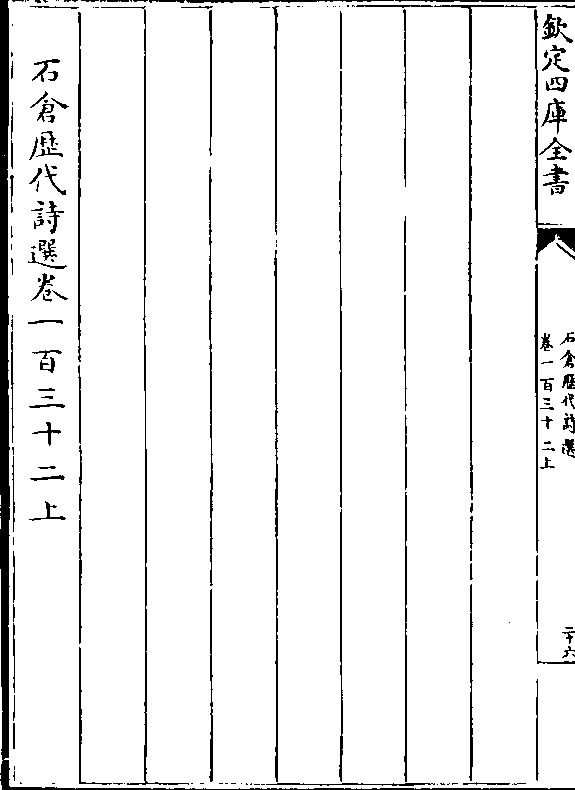 欽定四庫全書
石倉歷代詩選
卷一百三十二上
二十六
石倉歷代詩選卷一百三十二上